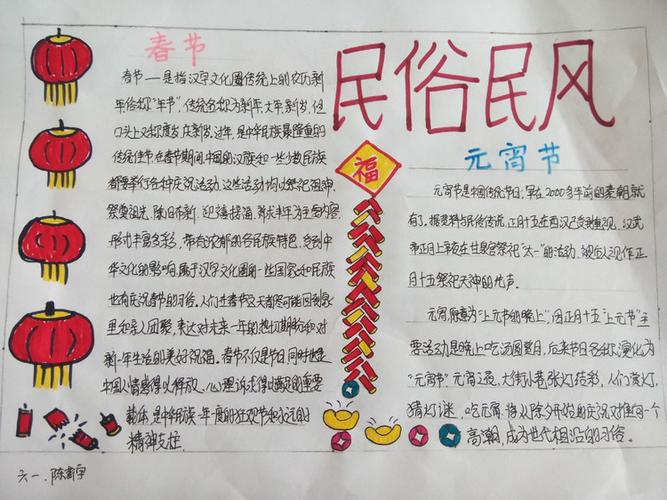 春节
春节——是指汉字文化圈传统上的农历新
年俗称"年节",传统名称为新年、大年、新岁,但
口头上又称度岁、庆新岁、过年,是中华民族最隆重的
传统佳节在春节期间中国的汉族和一些少数民族
都要举行各种庆祝活动。这些活动均以祭祀祖神、
祭奠祖先、除旧布新、迎禧接福、祈求丰年为主要内容
形式丰富多彩,带有浓郁的各民族特色,受到中
华文化的影响,属于汉字文化圈的一些国家和民族
也有庆祝春节的习俗。人们在春节这天都尽可能回到家
里和亲人团聚,表达对未来一年的热切期盼和对
新一年生活的美好祝福。春节不仅是节日,同时也是
中国人情感得以释放、心理诉求得以满足的重要
载体,是中华民族一年度的狂欢节和永远的
精神支柱.
民俗民风
福
元宵节
元宵节是中国传统节日,早在2000多年前的秦朝就
有了。据资料与民俗传说,正月十五在西汉已受到重视,汉武
帝正月上辛夜在甘泉宫祭祀"太一"的活动,被后人视作正
月十五祭祀天神的先声。
元宵原意为"上元节的晚上",因正月十五"上元节"主
要活动是晚上吃汤圆赏月,后来节日名称演化为
"元宵节"元宵之夜,大街小巷张灯结彩,人们赏灯,
猜灯谜,吃元宵,将从除夕开始的庆祝又推向一个
高潮,成为世代相沿的习俗。
六一、陈